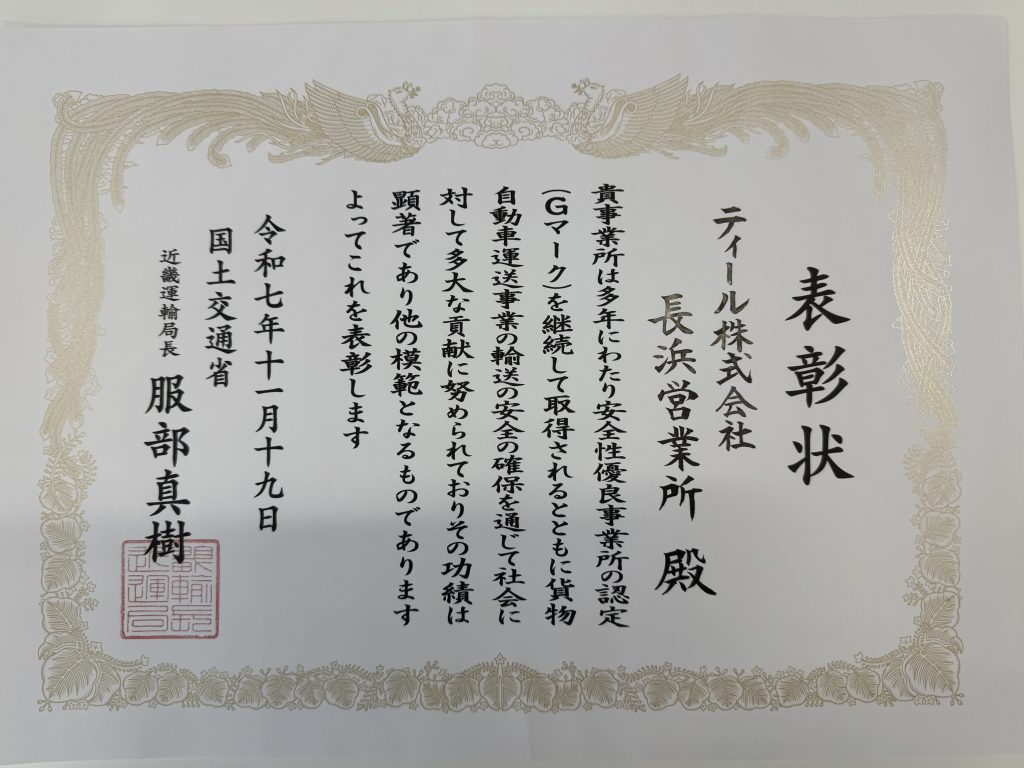 表彰状
ティール株式会社
長浜営業所 殿
貴事業所は多年にわたり安全性優良事業所の認定
(Gマーク)を継続して取得されるとともに貨物
自動車運送事業の輸送の安全の確保を通じて社会に
対して多大な貢献に努められておりその功績は
顕著であり他の模範となるものであります
よってこれを表彰します
令和七年十一月十九日
国土交通省
近畿運輸局長 服部真樹